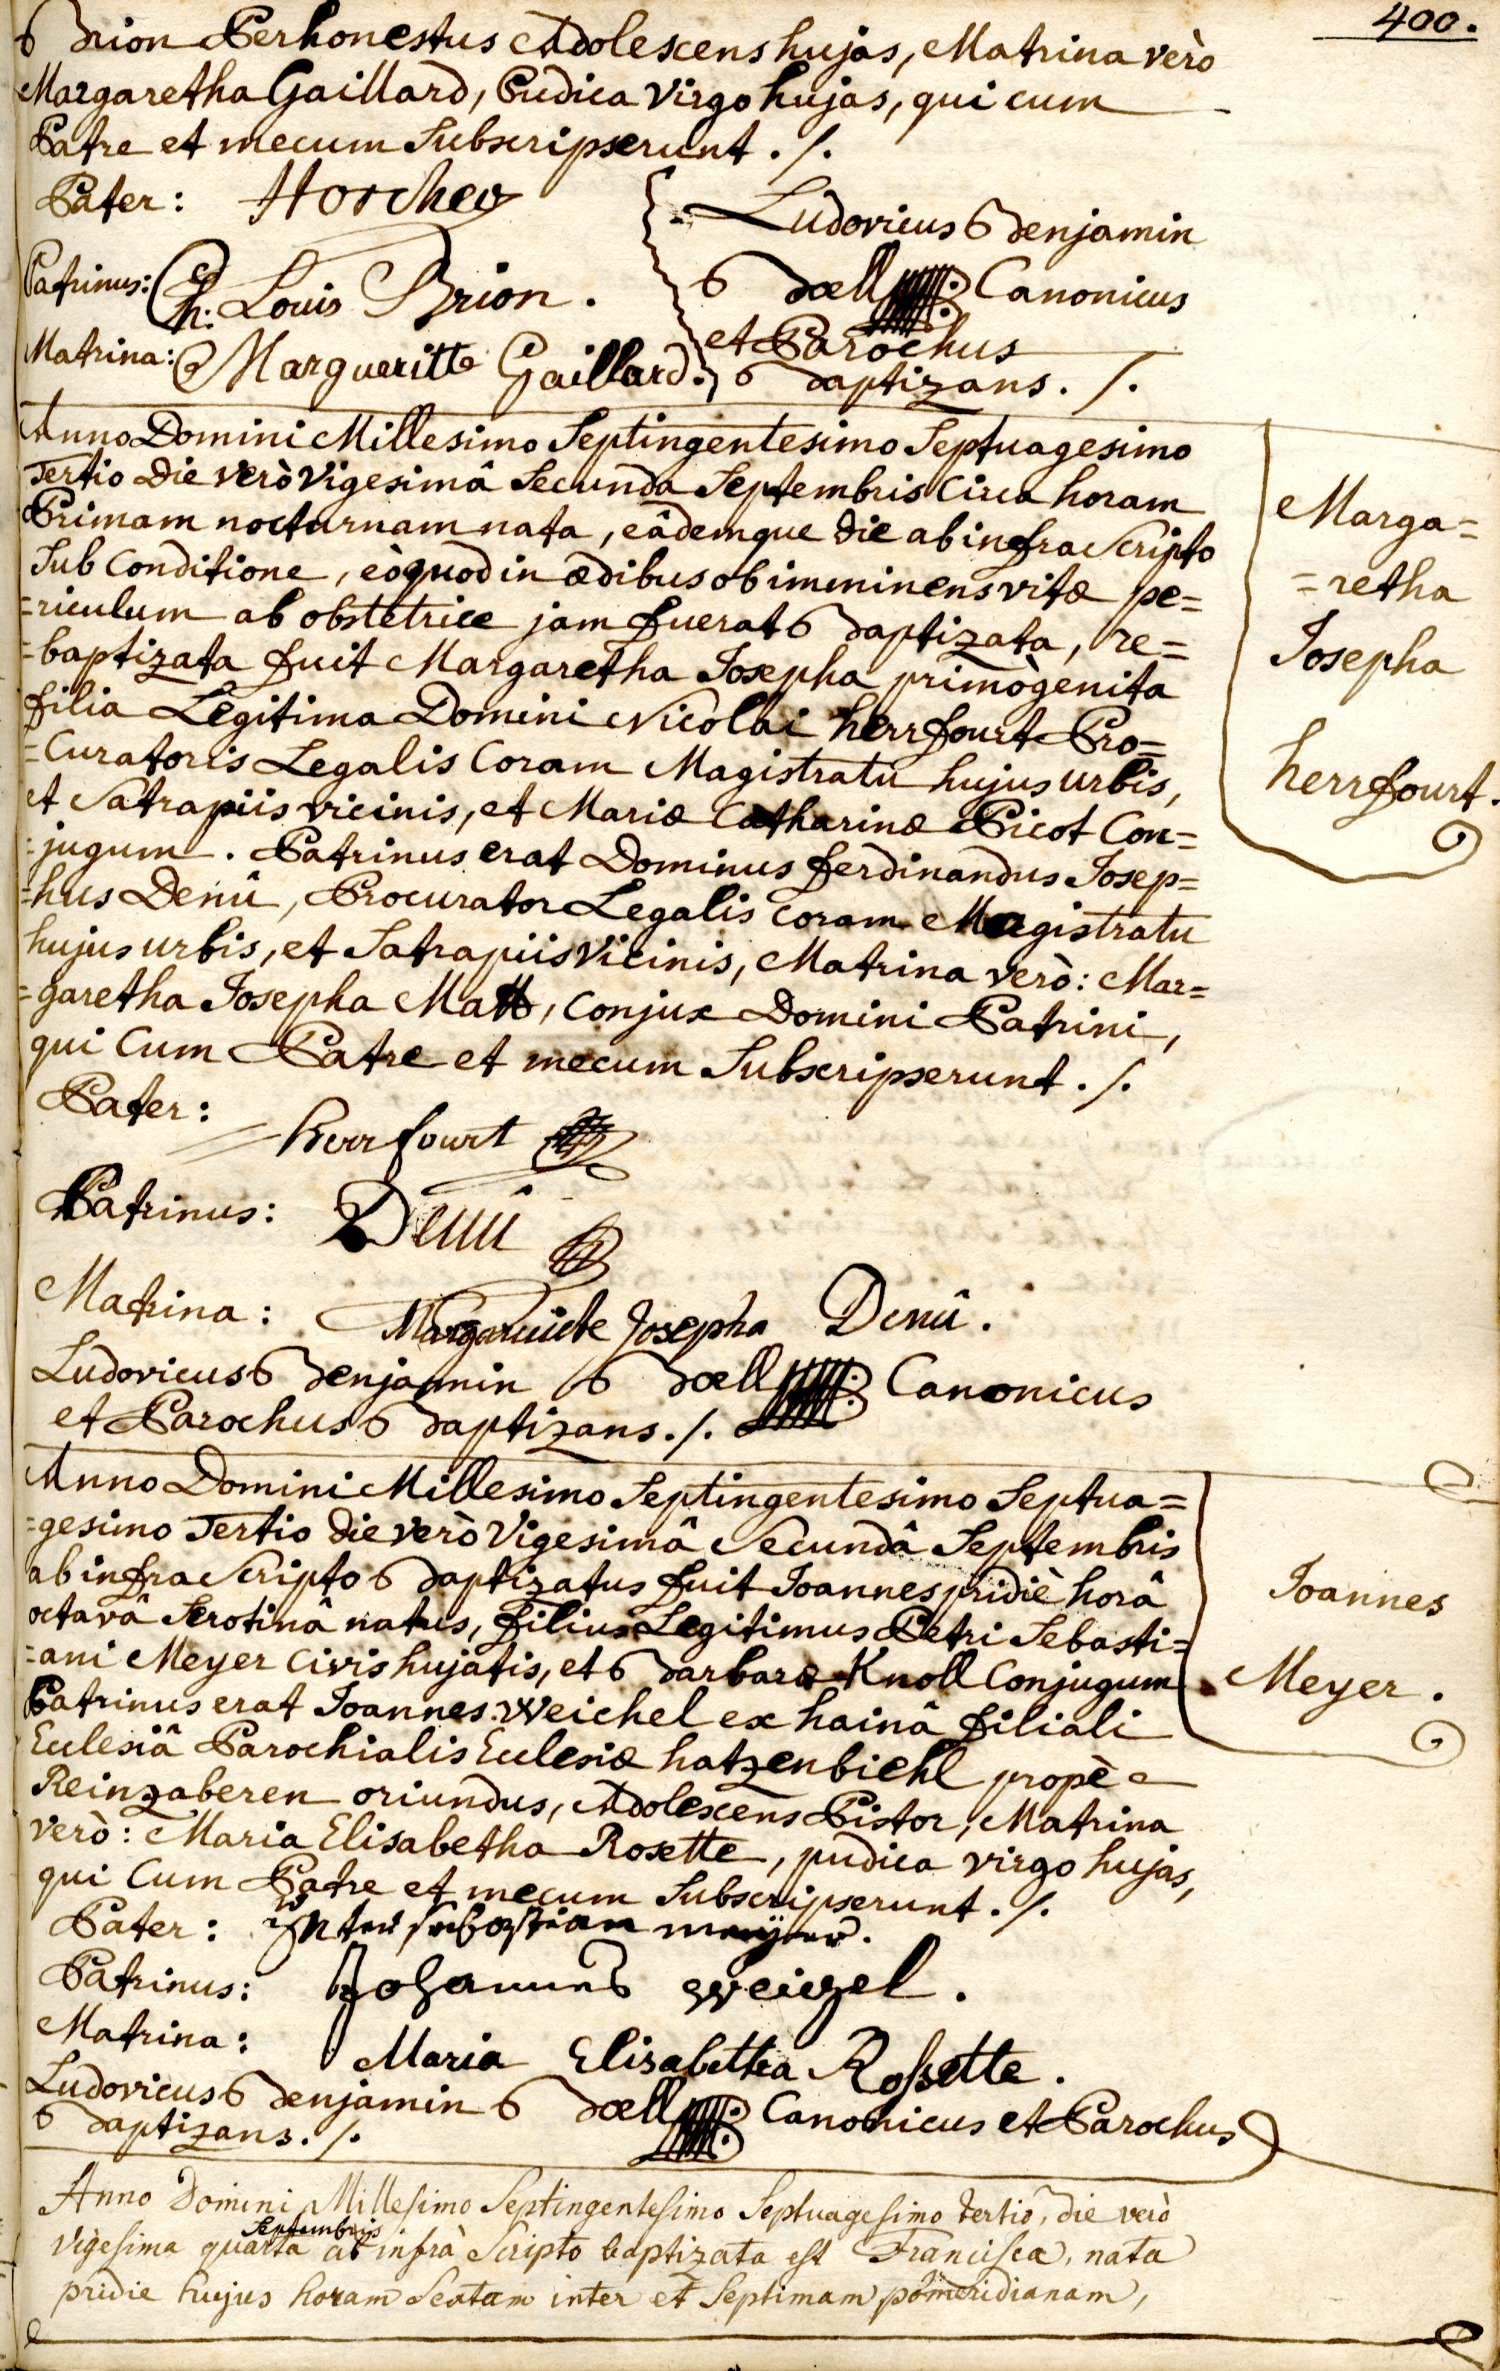 400.
Brion Perhonestus Adolescens hujas, Matrina verò
Margaretha Gaillard, Pudica Virgo hujas, qui cum
Patre et mecum Subscripserunt ./.
Pater: Horcher
Patrinus: Ch: Louis Brion.
Matrina: Margueritte Gaillard.
Ludovicus Benjamin
Boell Canonicus
et Parochus
Baptizans. /.
Anno Domini Millesimo Septingentesimo Septuagesimo
Tertio Die verò Vigesimâ Secunda Septembris Circa horam
Primam nocturnam nata, eâdemque die ab infra Scripto
Sub Conditione, eò quod in ædibus ob imminens vitæ pe=
=riculum ab obstetrice jam fuerat Baptizata, re=
=baptizata fuit Margaretha Josepha primògenita
filia Legitima Domini Nicolai herrfourt Pro=
=Curatoris Legalis Coram Magistratu hujus urbis,
et Satrapiis vicinis, et Mariæ Catharinæ Picot Con=
=jugum. Patrinus erat Dominus ferdinandus Josep=
=hus Denû, Procurator Legalis coram Magistratu
hujus urbis, et Satrapiis Vicinis, Matrina verò: Mar=
=garetha Josepha Matt, Conjux Domini Patrini,
qui Cum Patre et mecum Subscripserunt ./.
Marga=
=retha
Josepha
herrfourt.
Pater: herrfourt
Patrinus: Denû
Matrina: Josepha Denû.
Ludovicus Benjamin Boell Canonicus
et Parochus Baptizans ./.
Anno Domini Millesimo Septingentesimo Septua=
=gesimo Tertio die verò Vigesimâ Secundâ Septembris
ab infra Scripto Baptizatus fuit Joannes pridiè horâ
octavâ Serotinâ natus, filius Legitimus Petri Sebasti=
=ani Meyer Civis hujatis, et Barbaræ Knoll Conjugum
Patrinus erat Joannes Weichel ex hainâ filiali
Eclesiâ Parochialis Eclesiæ hatzenbiehl propè
Reinzaberen oriundus, Adolescens Pistor, Matrina
verò: Maria Elisabetha Rosette, pudica virgo hujas,
qui Cum Patre et mecum Subscripserunt ./.
Joannes
Meyer.
Pater: sebastian meyer.
Patrinus: Johannes weigel.
Matrina: Maria Elisabettha Rosette.
Ludovicus Benjamin Boell Canonicus et Parochus
Baptizans ./.
Anno Domini Millesimo Septingentesimo Septuagesimo tertio, die verò
Septembris
Vigesima quarta ab infrà Scripto baptizata est Francisca, nata
pridie hujus horam Sextam inter et Septimam pomeridianam,